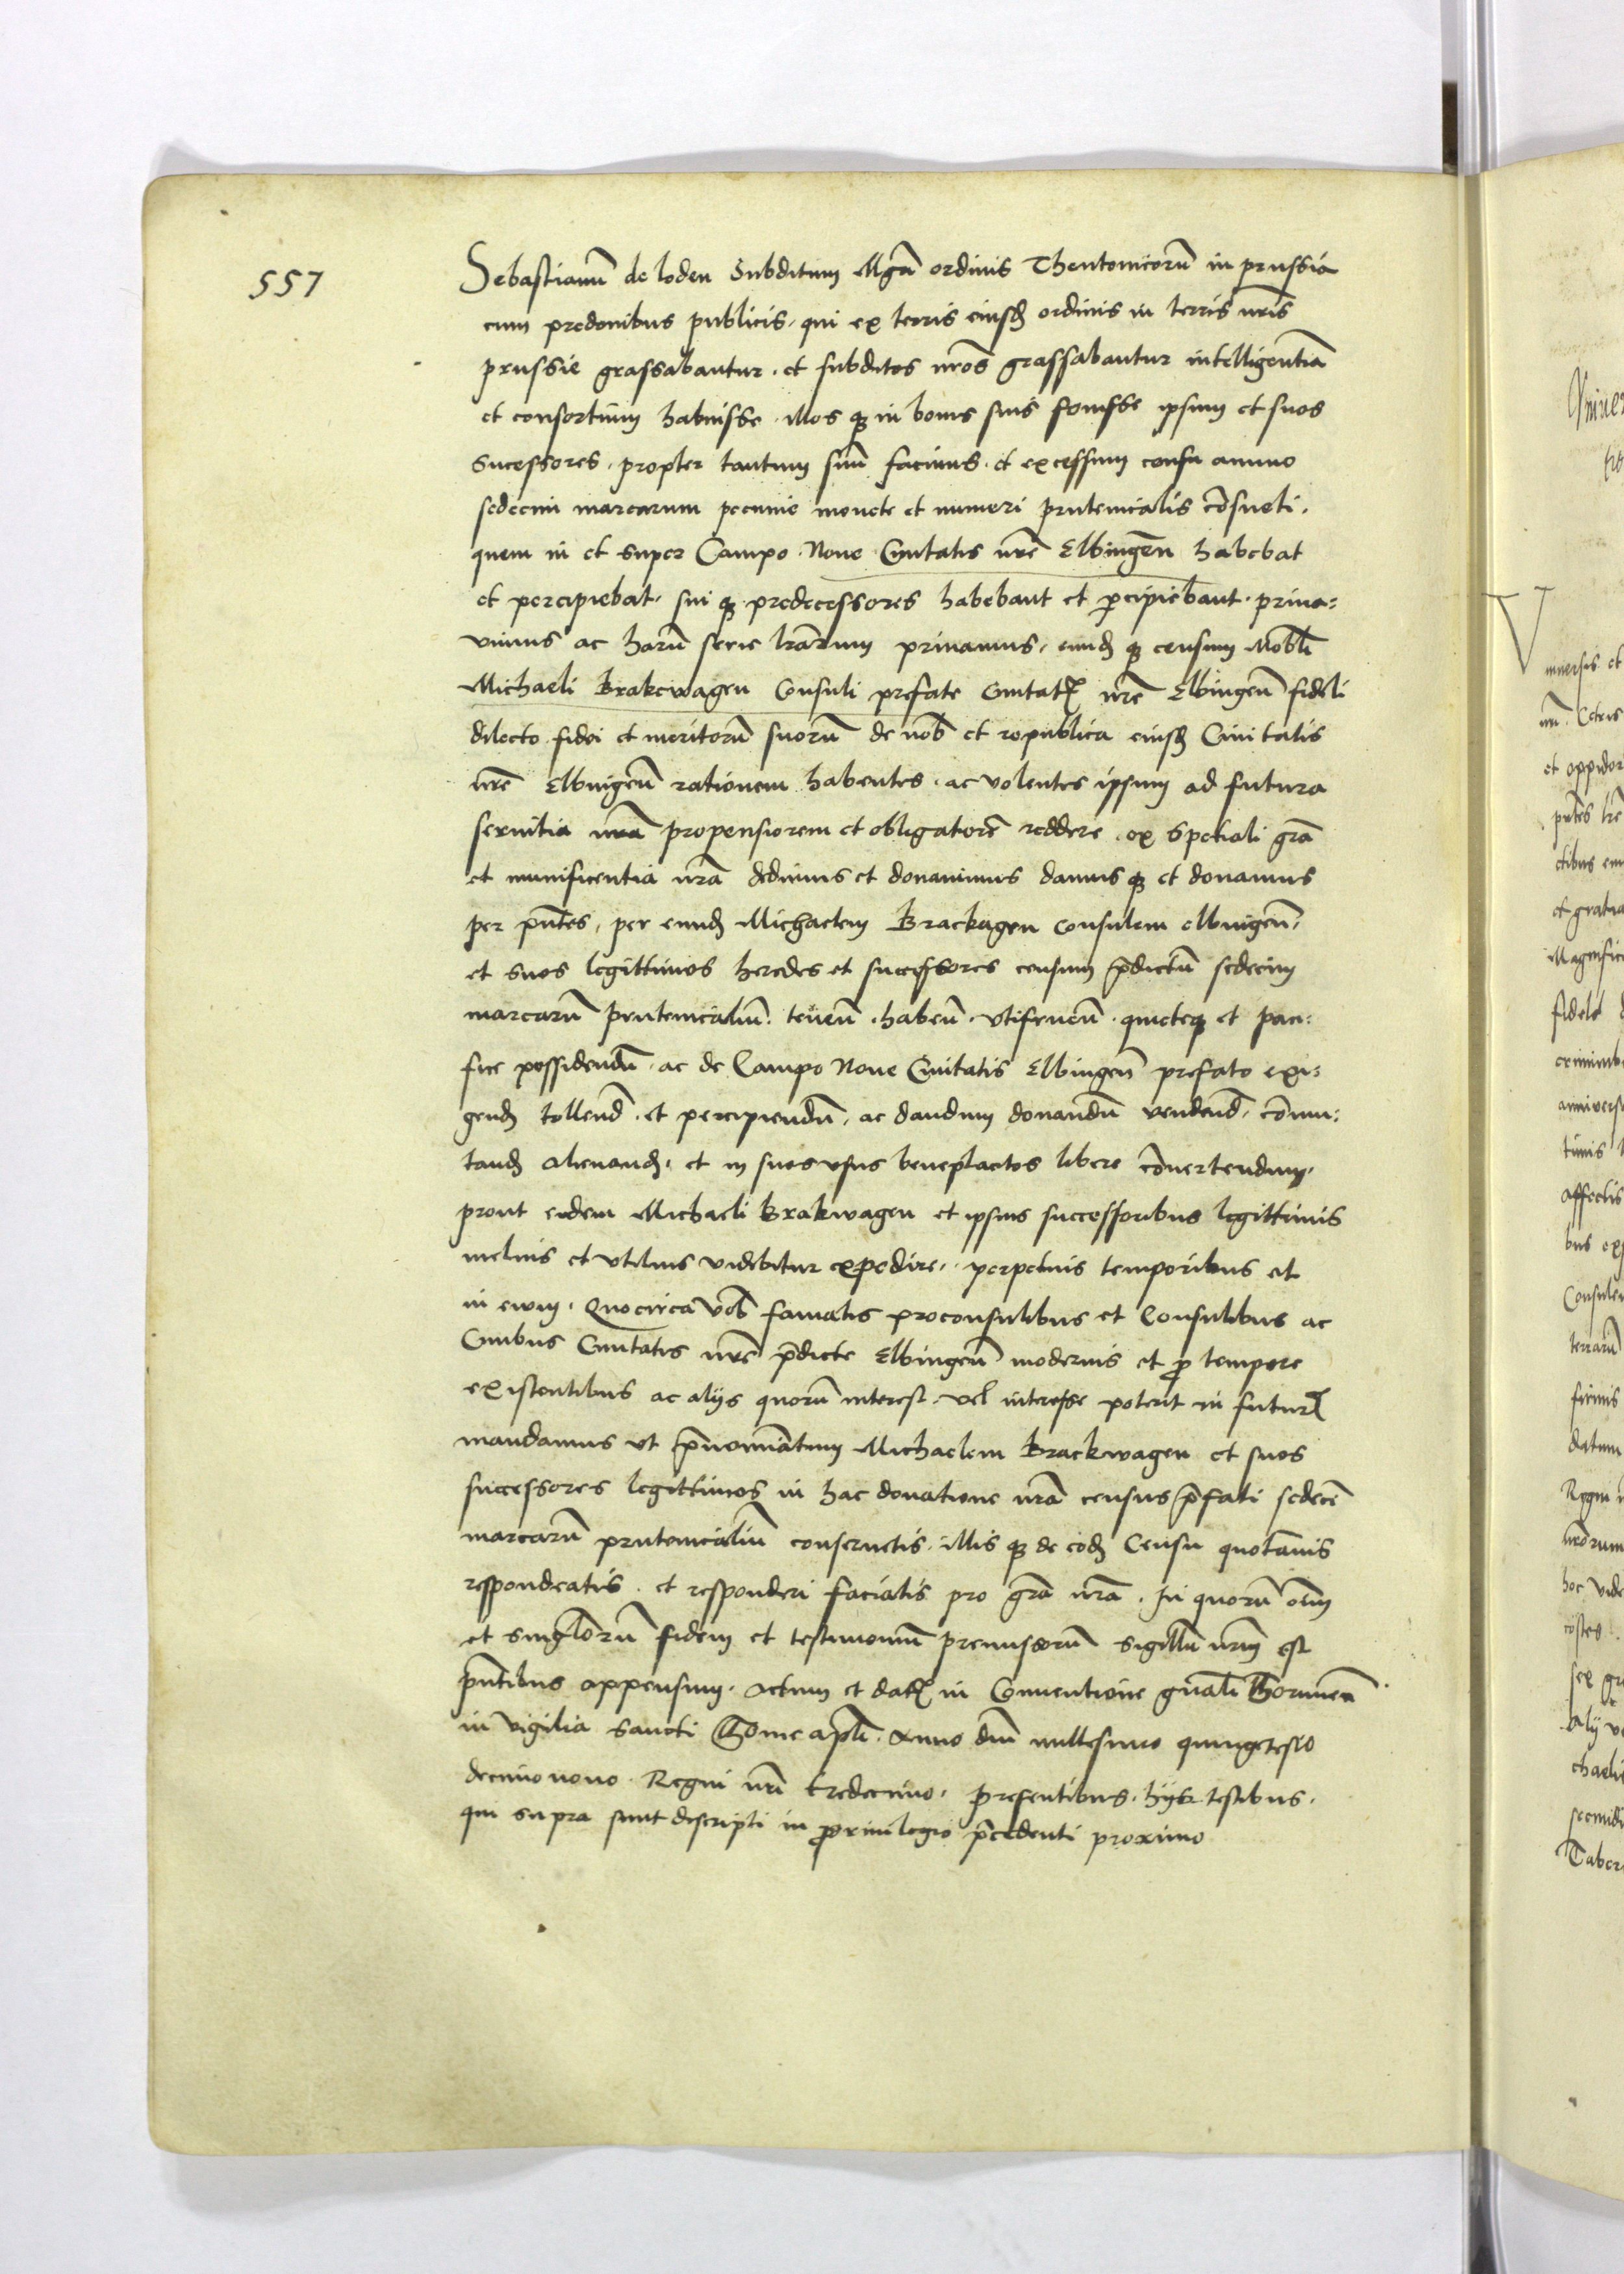 557
Sebastianū de loden Subditum Mgrī ordinis Theutonicorū in prussia
cum predonibus publicis, qui ex terris eiusd ordinis in terris nrīs
prussie grassabantur. et subditos nrōs grassabantur intelligentiā
et consortium habuisse. illos qz in bonis suis fouisse ipsum et suos
sucessores. propter tantum suū facinus. et excessum censu annuo
sedecim marcarum pecunie monete et numeri prutenicalis cōsueti.
quem in et super Campo Noue Ciuitatis nrē Elbingēn habebat
et percipiebat. sui qz predecessores habebant et percipiebant. priua=
uimus ac harū serie lrārum priuamus. eund qz censum Nobli
Michaeli Brakewagen Consuli prefate Ciuitatis nrē Elbingeñ fideli
dilecto fidei et meritorū suorū de nob et republica eiusd Ciuitatis
nrē Elbingeñ rationem habentes. ac volentes ipsum ad futura
seruitia nrā propensiorem et obligatorē reddere. ex spetiali grā
et munificentia nrā dedimus et donauimus damus qz et donamus
per pñtes, per eund Michaelem Brackagen consulem elbingeñ,
et suos legittimos heredes et successores censum p̄dictū sedecim
marcarū prutenicaliū. teneñ. habeñ. vtifrueñ. quieteqz et paci=
fice possidendū. ac de Campo Noue Ciuitatis Elbingeñ prefato exi=
gend tollend. et percipiendū. ac dandum donandū vendend. cōmu=
tand alienand. et in suos vsus beneplacitos libere cōuertendum.
prout eidem Michaeli Brakwagen et ipsius successoribus legittimis
melius et vtilius videbitur expedire. perpetuis temporibus et
in ewm. Quocirca vob famatis proconsulibus et Consulibus ac
Ciuibus Ciuitatis nrē p̄dicte Elbingeñ modernis et pro tempore
existentibus ac alijs quorū interest. vel interesse poterit in futur
mandamus vt p̄nominatum Michaelem Brackwagen et suos
successores legittimos in hac donatione nrā census p̄fati sedecē
marcarū prutenicaliū conseruetis. illis qz de eod Censu quotannis
respondeatis. et responderi faciatis pro grā nrā. In quorū om̄
et singlorū fidem et testimoniū premissorū sigillū nrm est
pñtibus appensum. Actum et dat in Conuentione gñali Thorunen.
in vigilia sancti Thome apli. Anno dnī millesimo quingetesīo
decimonono. Regni nrī tredecimo. presentibus. hijs testibus.
qui supra sunt discripti in priuilegio p̄cedenti proximo